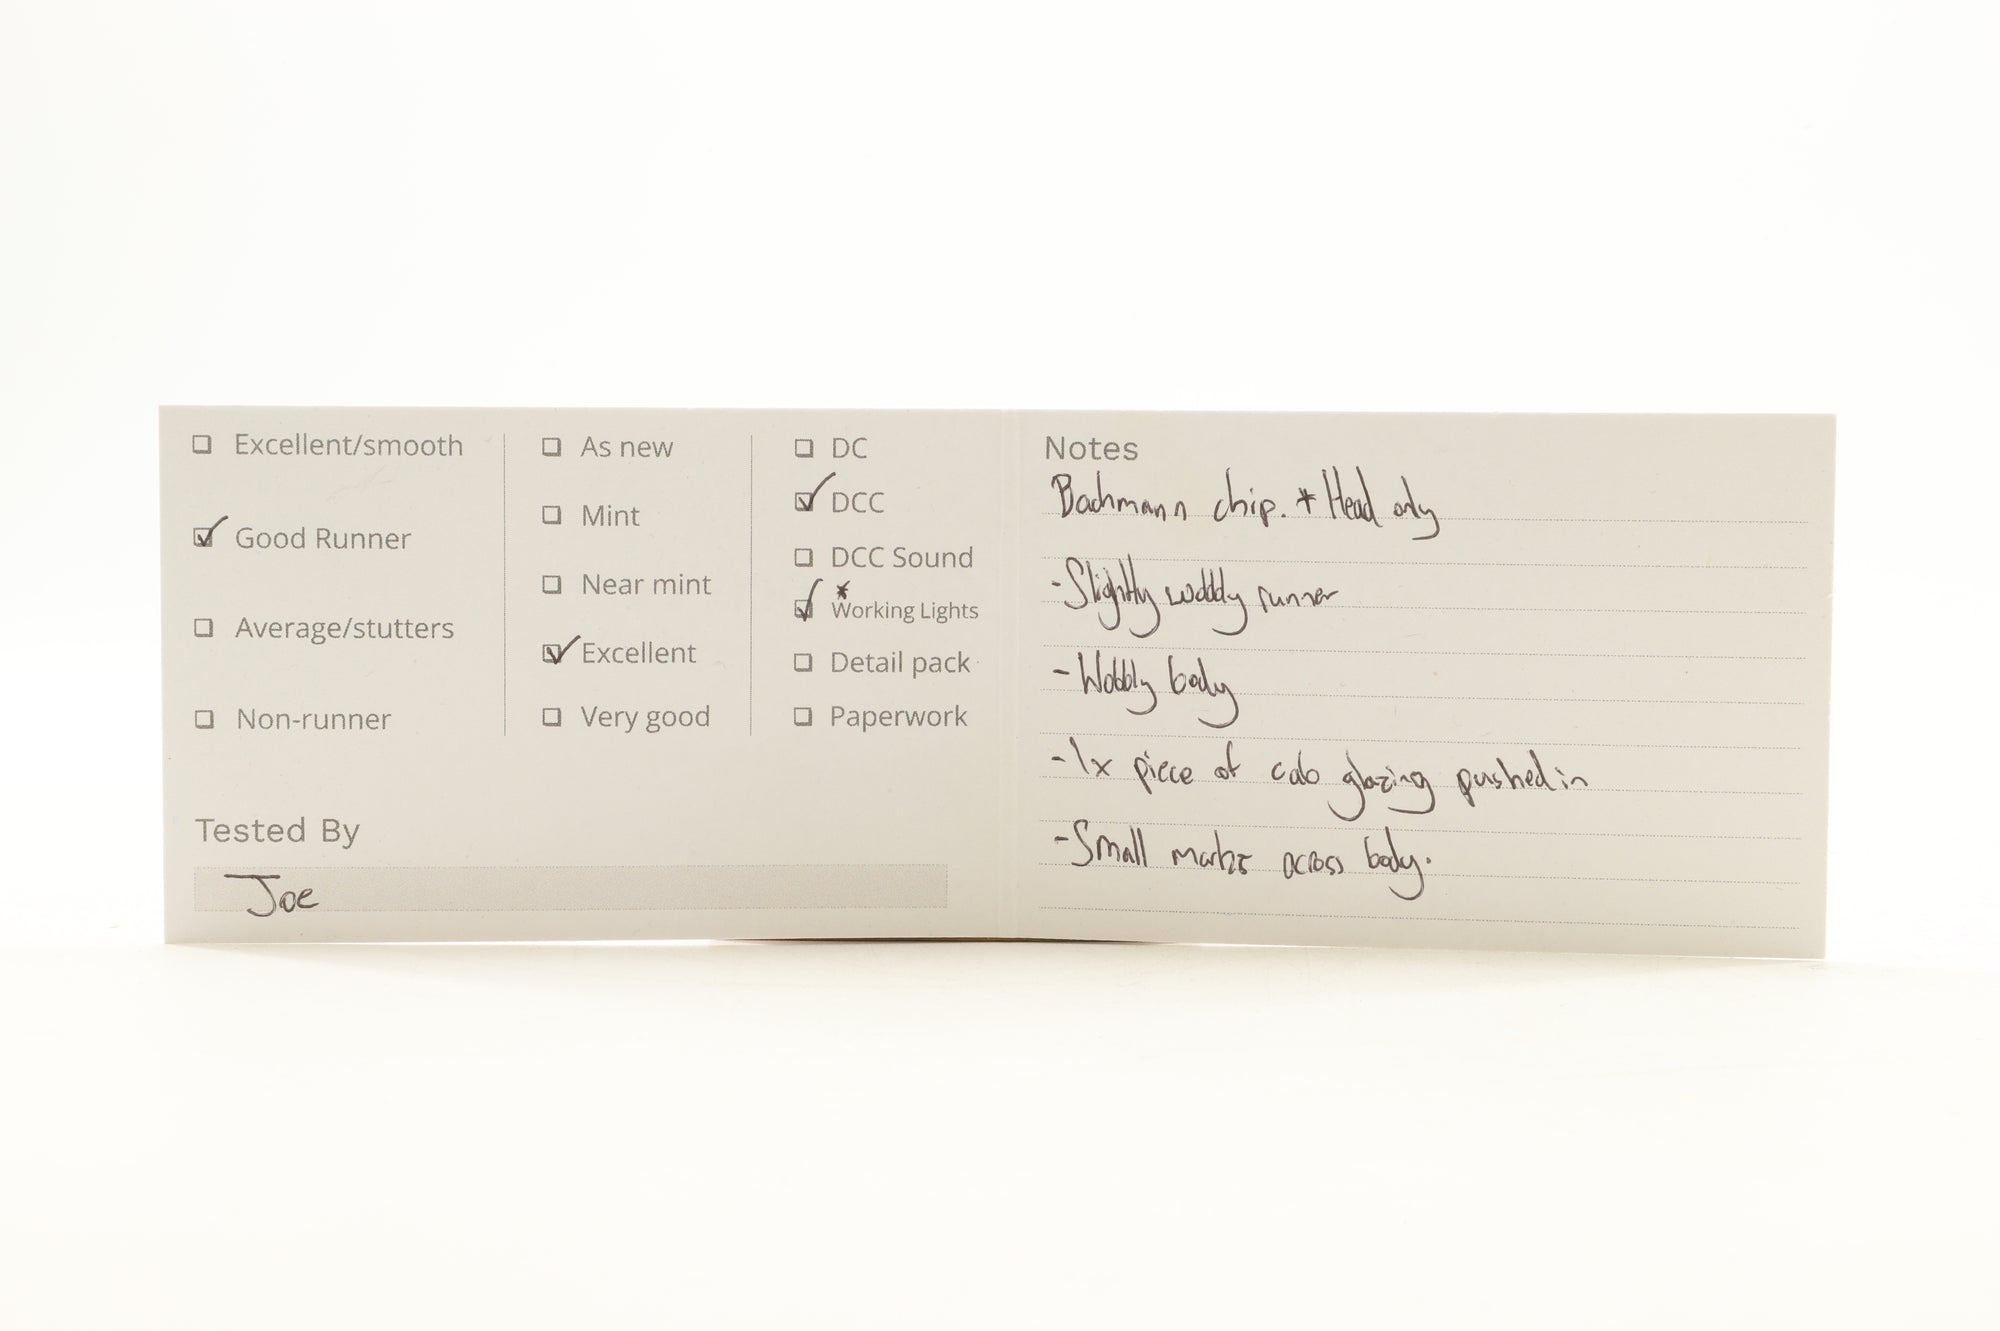 Excellent/smooth
Good Runner
Average/stutters
Non-runner
As new
Mint
Near mint
Excellent
Very good
DC
DCC
DCC Sound
*
Working Lights
Detail pack
Paperwork
Tested By
Joe
Notes
Bachmann chip. * Head only
- Slightly wobbly runner
- Wobbly body
- 1x piece of cab glazing pushed in
- Small marks across body.